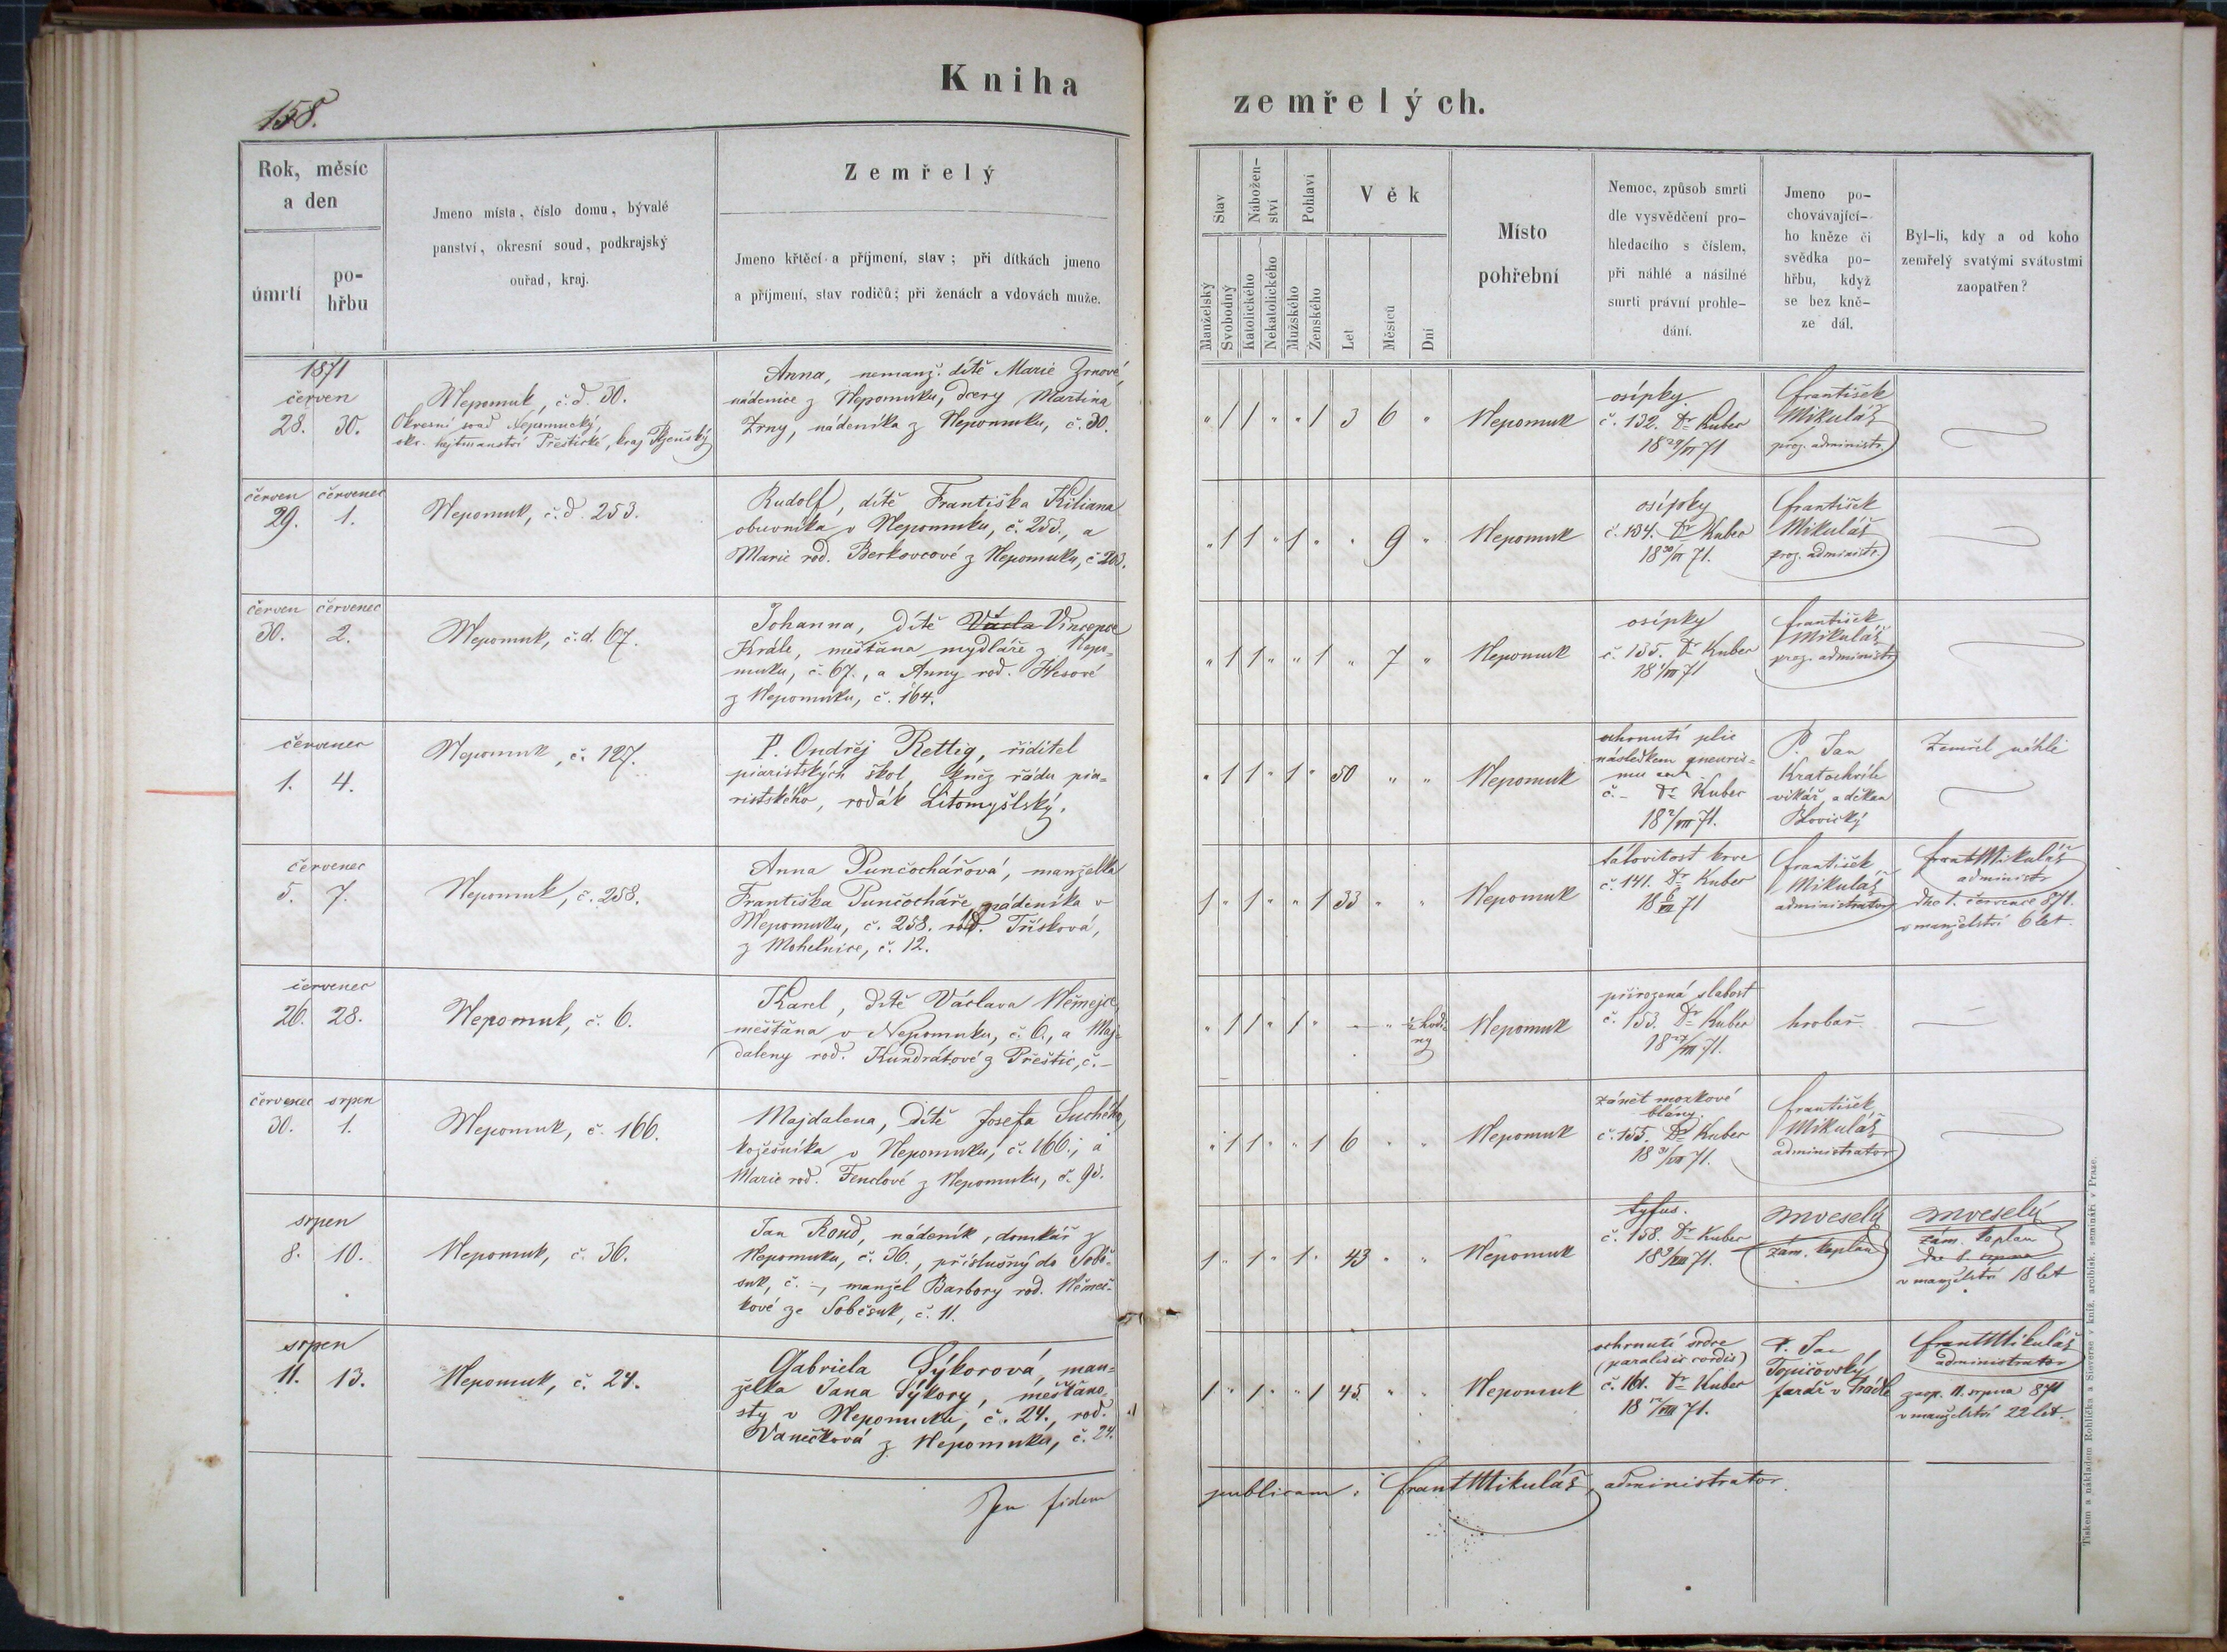 Kniha
158.
Rok, měsíc
a den
úmrtí
po-
hřbu
Jmeno místa, číslo domu, bývalé
panství, okresní soud, podkrajský
ouřad, kraj.
Zemřelý
Jmeno křtěcí a příjmení, stav; při dítkách jmeno
a příjmení, stav rodičů; při ženách a vdovách muže.
1871
červen
28. 30.
Nepomuk, č. d. 30.
Okresní soud Nepomucký,
okr. hejtmanství Přeštické, kraj Plzeňský
Anna, nemanž. dítě Marie Zrnové,
nádenice z Nepomuku, dcery Martina
Zrny, nádeníka z Nepomuku, č. 30.
červen červenec
29. 1.
Nepomuk, č. d. 253.
Rudolf, dítě Františka Kiliana
obuvníka v Nepomuku, č. 253., a
Marie rod. Berkovcové z Nepomuku, č. 203.
červen červenec
30. 2.
Nepomuk, č. d. 67.
Johanna, dítě Václa Vincence
Krále, měšťana mydláře z Nepo-
muku, č. 67., a Anny rod. Hesové
z Nepomuku, č. 164.
červenec
1. 4.
Nepomuk, č. 127.
P. Ondřej Rettig, řiditel
piaristských škol, kněz řádu pia-
ristského, rodák Litomyšlský.
červenec
5. 7.
Nepomuk, č. 258.
Anna Punčochářová, manželka
Františka Punčocháře, nádeníka v
Nepomuku, č. 258. rod. Třísková,
z Mohelnice, č. 12.
červenec
26. 28.
Nepomuk, č. 6.
Karel, dítě Václava Němejce,
měšťana v Nepomuku, č. 6., a Maj-
daleny rod. Kundrátové z Přeštic, č. –
červenec srpen
30. 1.
Nepomuk, č. 166.
Majdalena, dítě Josefa Suchého,
kožešníka v Nepomuku, č. 166., a
Marie rod. Fenclové z Nepomuku, č. 95.
srpen
8. 10.
Nepomuk, č. 36.
Jan Roud, nádeník, domkář z
Nepomuku, č. 36., příslušný do Sobě-
suk, č. –, manžel Barbory rod. Němeč-
kové ze Soběsuk, č. 11.
srpen
11. 13.
Nepomuk, č. 24.
Gabriela Sýkorová, man-
želka Jana Sýkory, měšťano-
sty v Nepomuku, č. 24., rod.
Vanečková z Nepomuku, č. 24.
Pro fidem
zemřelých.
Stav
Nábožen-
ství
Pohlaví
Věk
Manželský
Svobodný
Katolického
Nekatolického
Mužského
Ženského
Let
Měsíců
Dní
Místo
pohřební
Nemoc, způsob smrti
dle vysvědčení pro-
hledacího s číslem,
při náhlé a násilné
smrti právní prohle-
dání.
Jmeno po-
chovávající-
ho kněze či
svědka po-
hřbu, když
se bez kně-
ze dál.
Byl-li, kdy a od koho
zemřelý svatými svátostmi
zaopatřen?
" 1 1 " " 1 3 6 " Nepomuk
osípky
č. 132. Dr Kuber
18 29/VI 71
František
Mikuláš
proz. administr.
" 1 1 " 1 " " 9 " Nepomuk
osípky
č. 134. Dr Kuber
18 30/VI 71.
František
Mikuláš
proz. administr.
" 1 1 " " 1 " 7 " Nepomuk
osípky
č. 135. Dr Kuber
18 1/VII 71
František
Mikuláš
proz. administr.
" 1 1 " 1 " 50 " " Nepomuk
ochrnutí plic
následkem
č. – Dr Kuber
18 2/VII 71.
P. Jan
Kratochvíle
vikář, a děkan
Blovický
Zemřel náhle
1 " 1 " " 1 33 " " Nepomuk
č. 141. Dr Kuber
18 6/VII 71
František
Mikuláš
administrator
Frant Mikuláš
administr
dne 1. července 871.
v manželství 6 let.
" 1 1 " 1 " – " ½ hodi-
ny
Nepomuk
přirozená slabost
č. 153. Dr Kuber
18 27/VII 71.
hrobař
" 1 1 " " 1 6 " " Nepomuk
zánět mozkové
blány.
č. 155. Dr Kuber
18 31/VII 71.
František
Mikuláš
administrator
1 " 1 " 1 " 43 " " Nepomuk
tyfus.
č. 158. Dr Kuber
18 9/VIII 71.
MVeselý
zám. kaplan
MVeselý
zám. kaplan
dne 8. srpna
v manželství 18 let
1 " 1 " " 1 45 " " Nepomuk
ochrnutí srdce
(paralisis cordis)
č. 161. Dr Kuber
18 /VIII 71.
P. Jan
Topičovský
farář v Prádle
Frant Mikuláš
administrator
zaop. 11. srpna 871
v manželství 22 let.
publicam: Frant Mikuláš, administrator.
Tiskem a nákladem Rohlíčka a Sieverse v kníž. arcibisk. semináři v Praze.